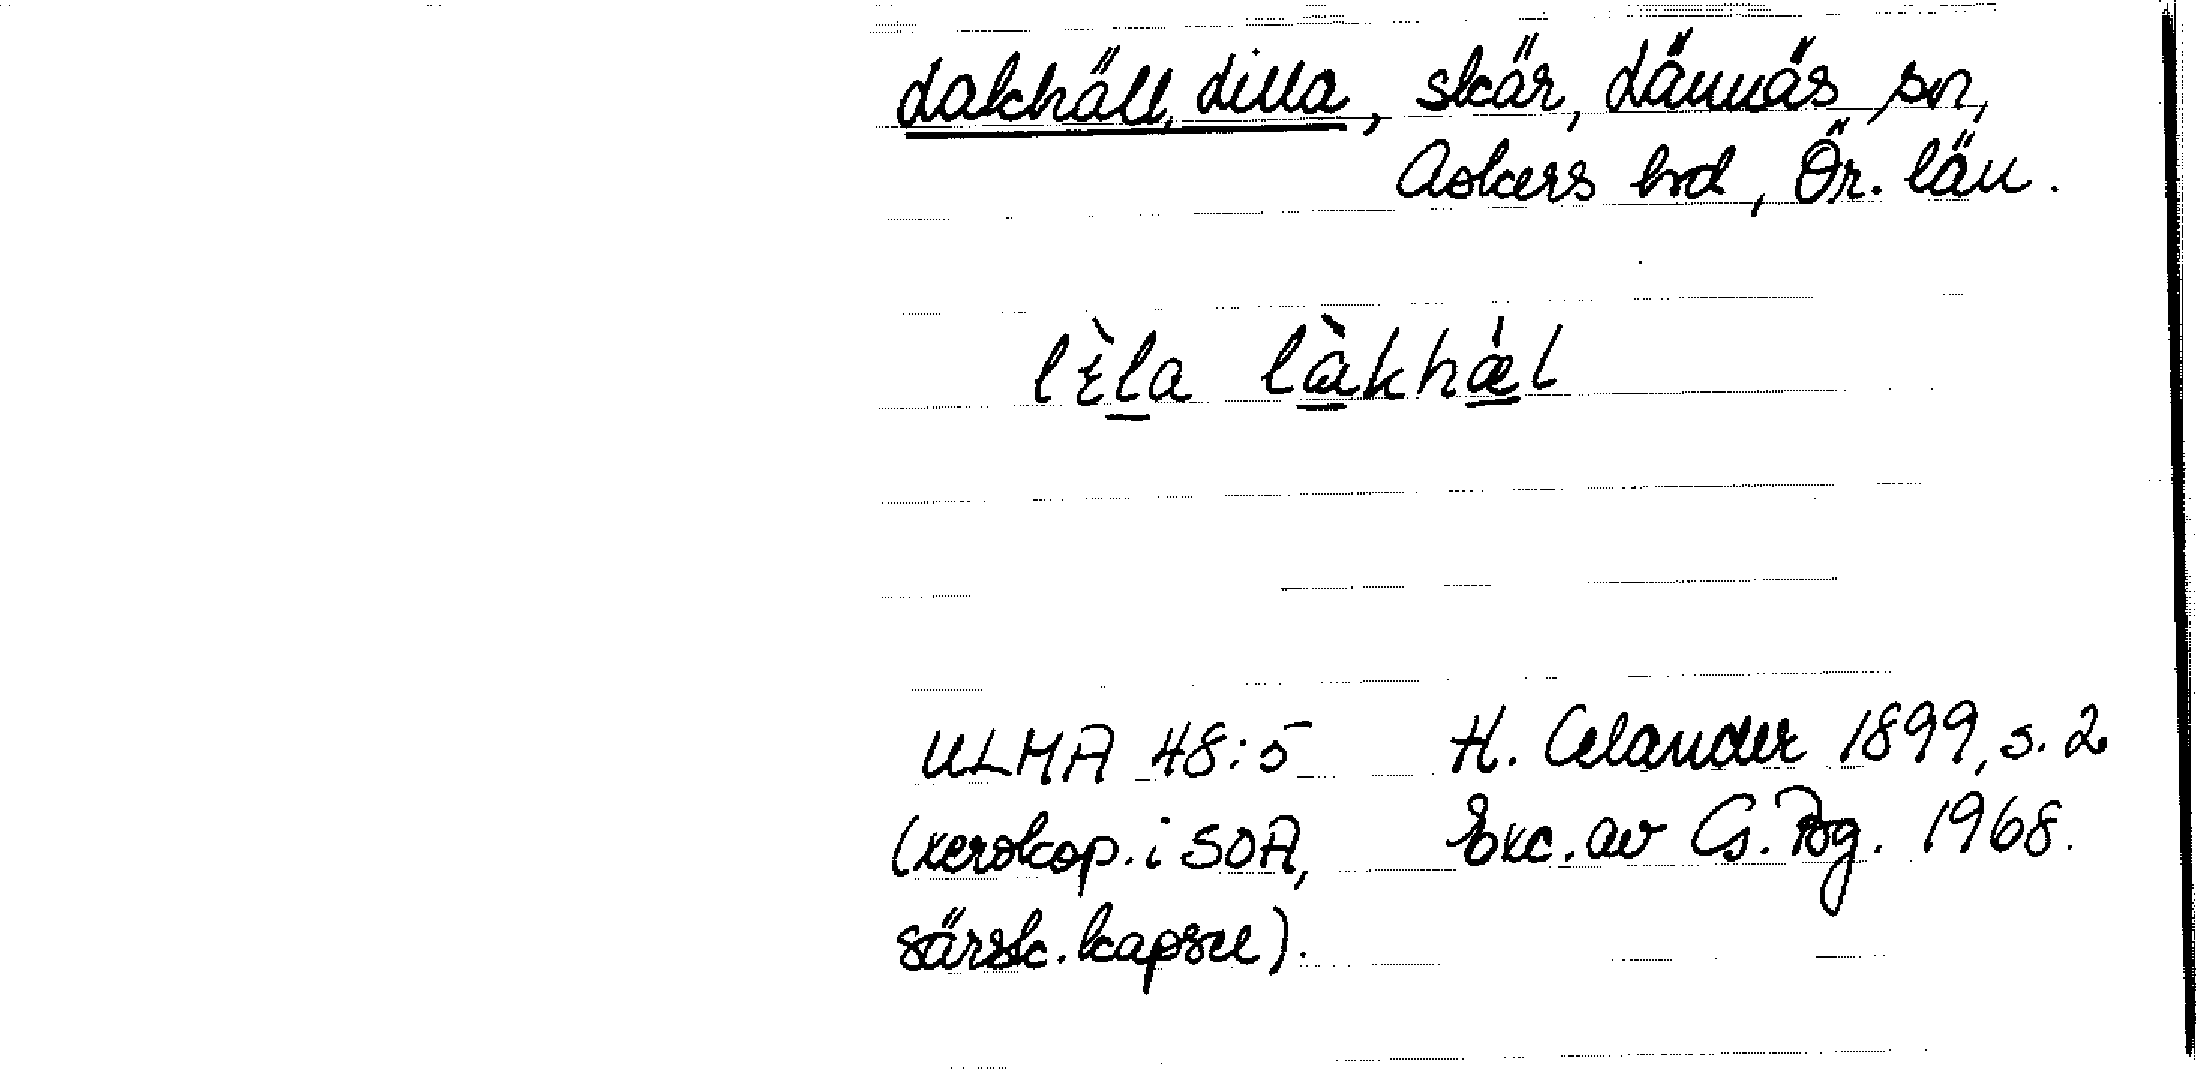 Lakhäll, Lilla, skär, Lännäs sn,
Askers hrd, Ör. län.
lὲla làkhǽl
ULMA 48:5 H. Celander 1899, s. 2
(xerokop. i SOA, Exc. av G. Pbg. 1968.
särsk. kapsel).